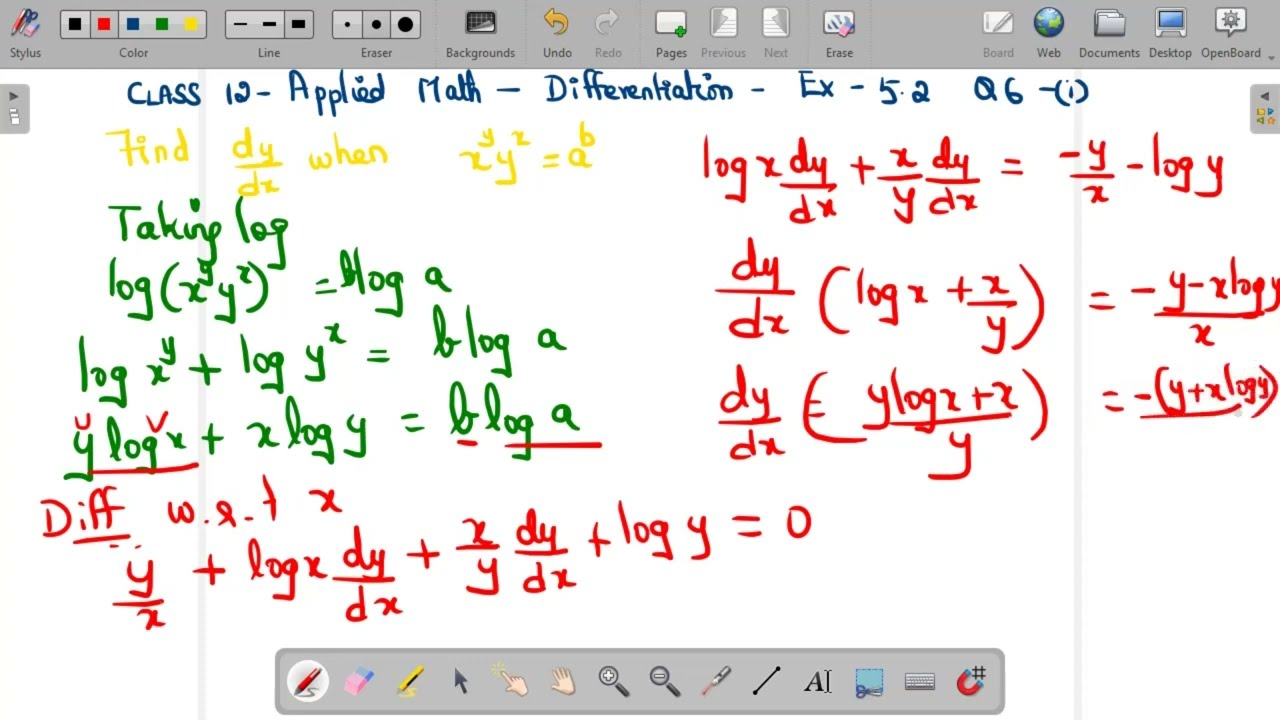 Stylus Color Line Eraser Backgrounds Undo Redo Pages Previous Next Erase Board Web Documents Desktop OpenBoard
CLASS 12 - Applied Math - Differentiation - Ex - 5.2 Q6 -(i)
Find dy/dx when x^y y^x = a^b
Taking log
log(x^y y^x) = b log a
log x^y + log y^x = b log a
y log x + x log y = b log a
Diff w.r.t x
y/x + log x dy/dx + x/y dy/dx + log y = 0
log x dy/dx + x/y dy/dx = -y/x - log y
dy/dx (log x + x/y) = -y-x log y/x
dy/dx (y log x + x/y) = -(y+x log y)